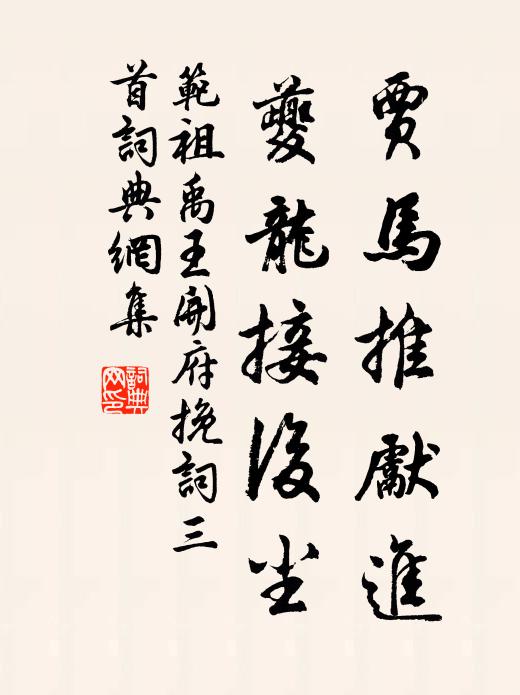 賈馬推獻進
夔龍接後尘
範祖禹王開府挽詞三
首詞典網集
詞典
网印